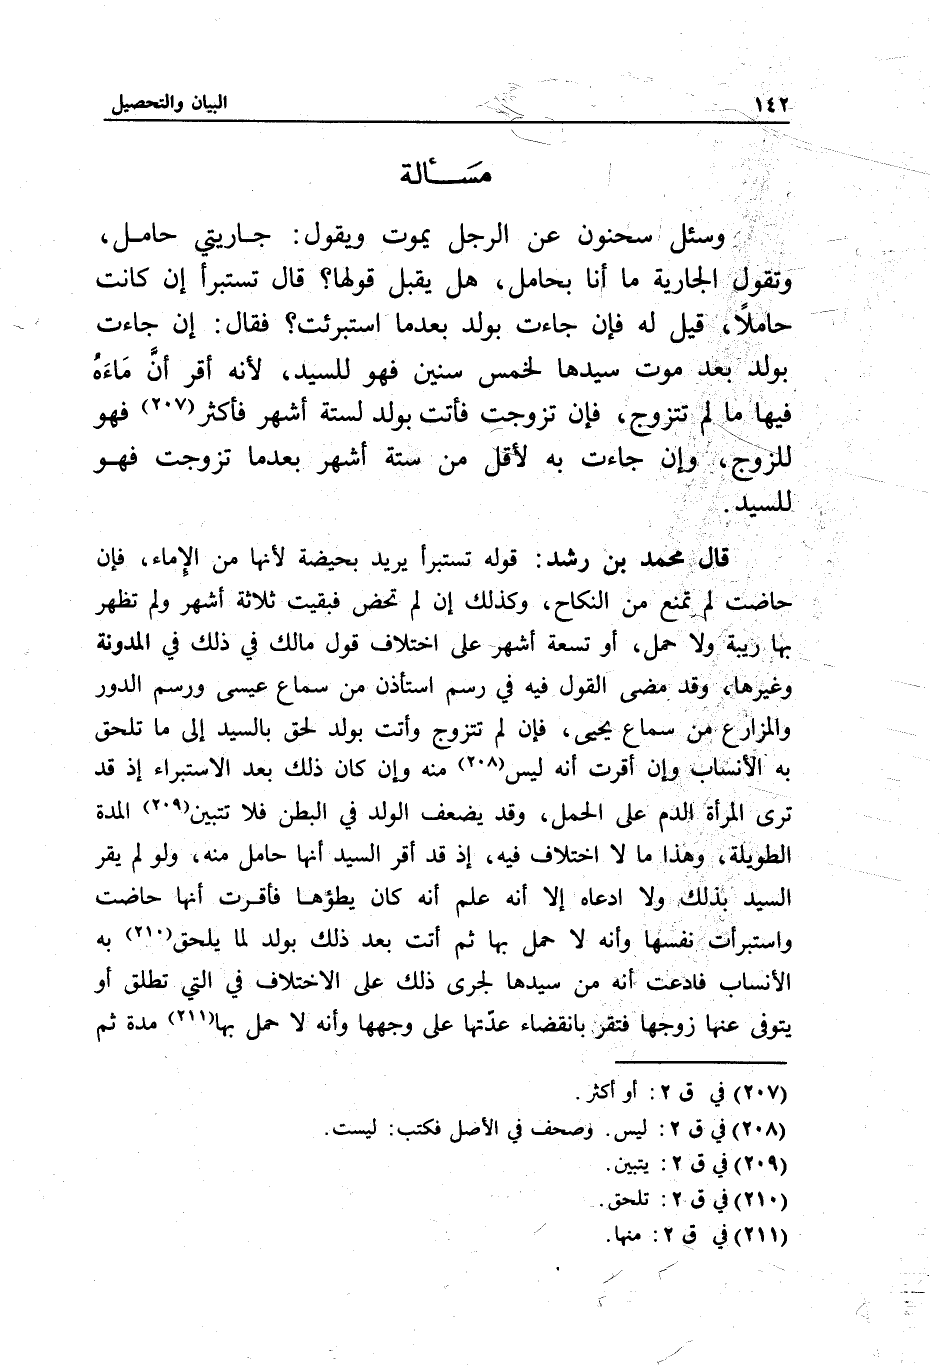 ١٤٢ البيان والتحصيل
مَســـألة
وسئل سحنون عن الرجل يموت ويقول: جـاريتي حامـل،
وتقول الجارية ما أنا بحامل، هل يقبل قولها؟ قال تستبرأ إن كانت
حاملاً، قيل له فإن جاءت بولد بعدما استبرئت؟ فقال: إن جاءت
بولد بعد موت سيدها لخمس سنين فهو للسيد، لأنه أقر أنَّ مَاءَهُ
فيها ما لم تتزوج، فإن تزوجت فأتت بولد لستة أشهر فأكثر (٢٠٧) فهو
للزوج، وإن جاءت به لأقل من ستة أشهر بعدما تزوجت فهـو
للسيد.
قال محمد بن رشد: قوله تستبرأ يريد بحيضة لأنها من الإماء، فإن
حاضت لم تمنع من النكاح، وكذلك إن لم تحض فبقيت ثلاثة أشهر ولم تظهر
بها ريبة ولا حمل، أو تسعة أشهر على اختلاف قول مالك في ذلك في المدونة
وغيرها، وقد مضى القول فيه في رسم استأذن من سماع عيسى ورسم الدور
والمزارع من سماع يحيى، فإن لم تتزوج وأتت بولد لحق بالسيد إلى ما تلحق
به الأنساب وإن أقرت أنه ليس(٢٠٨) منه وإن كان ذلك بعد الاستبراء إذ قد
ترى المرأة الدم على الحمل، وقد يضعف الولد في البطن فلا تتبين(٢٠٩) المدة
الطويلة، وهذا ما لا اختلاف فيه، إذ قد أقر السيد أنها حامل منه، ولو لم يقر
السيد بذلك ولا ادعاه إلا أنه علم أنه كان يطؤهـا فأقـرت أنها حاضت
واستبرأت نفسها وأنه لا حمل بها ثم أتت بعد ذلك بولد لما يلحق(٢١٠) به
الأنساب فادعت أنه من سيدها لجرى ذلك على الاختلاف في التي تطلق أو
يتوفى عنها زوجها فتقر بانقضاء عدّتها على وجهها وأنه لا حمل بها(٢١١) مدة ثم
(٢٠٧) في ق ٢: أو أكثر.
(٢٠٨) في ق ٢: ليس. وصحف في الأصل فكتب: ليست.
(٢٠٩) في ق ٢: يتبين.
(٢١٠) في ق ٢: تلحق.
(٢١١) في ق ٢: منها.